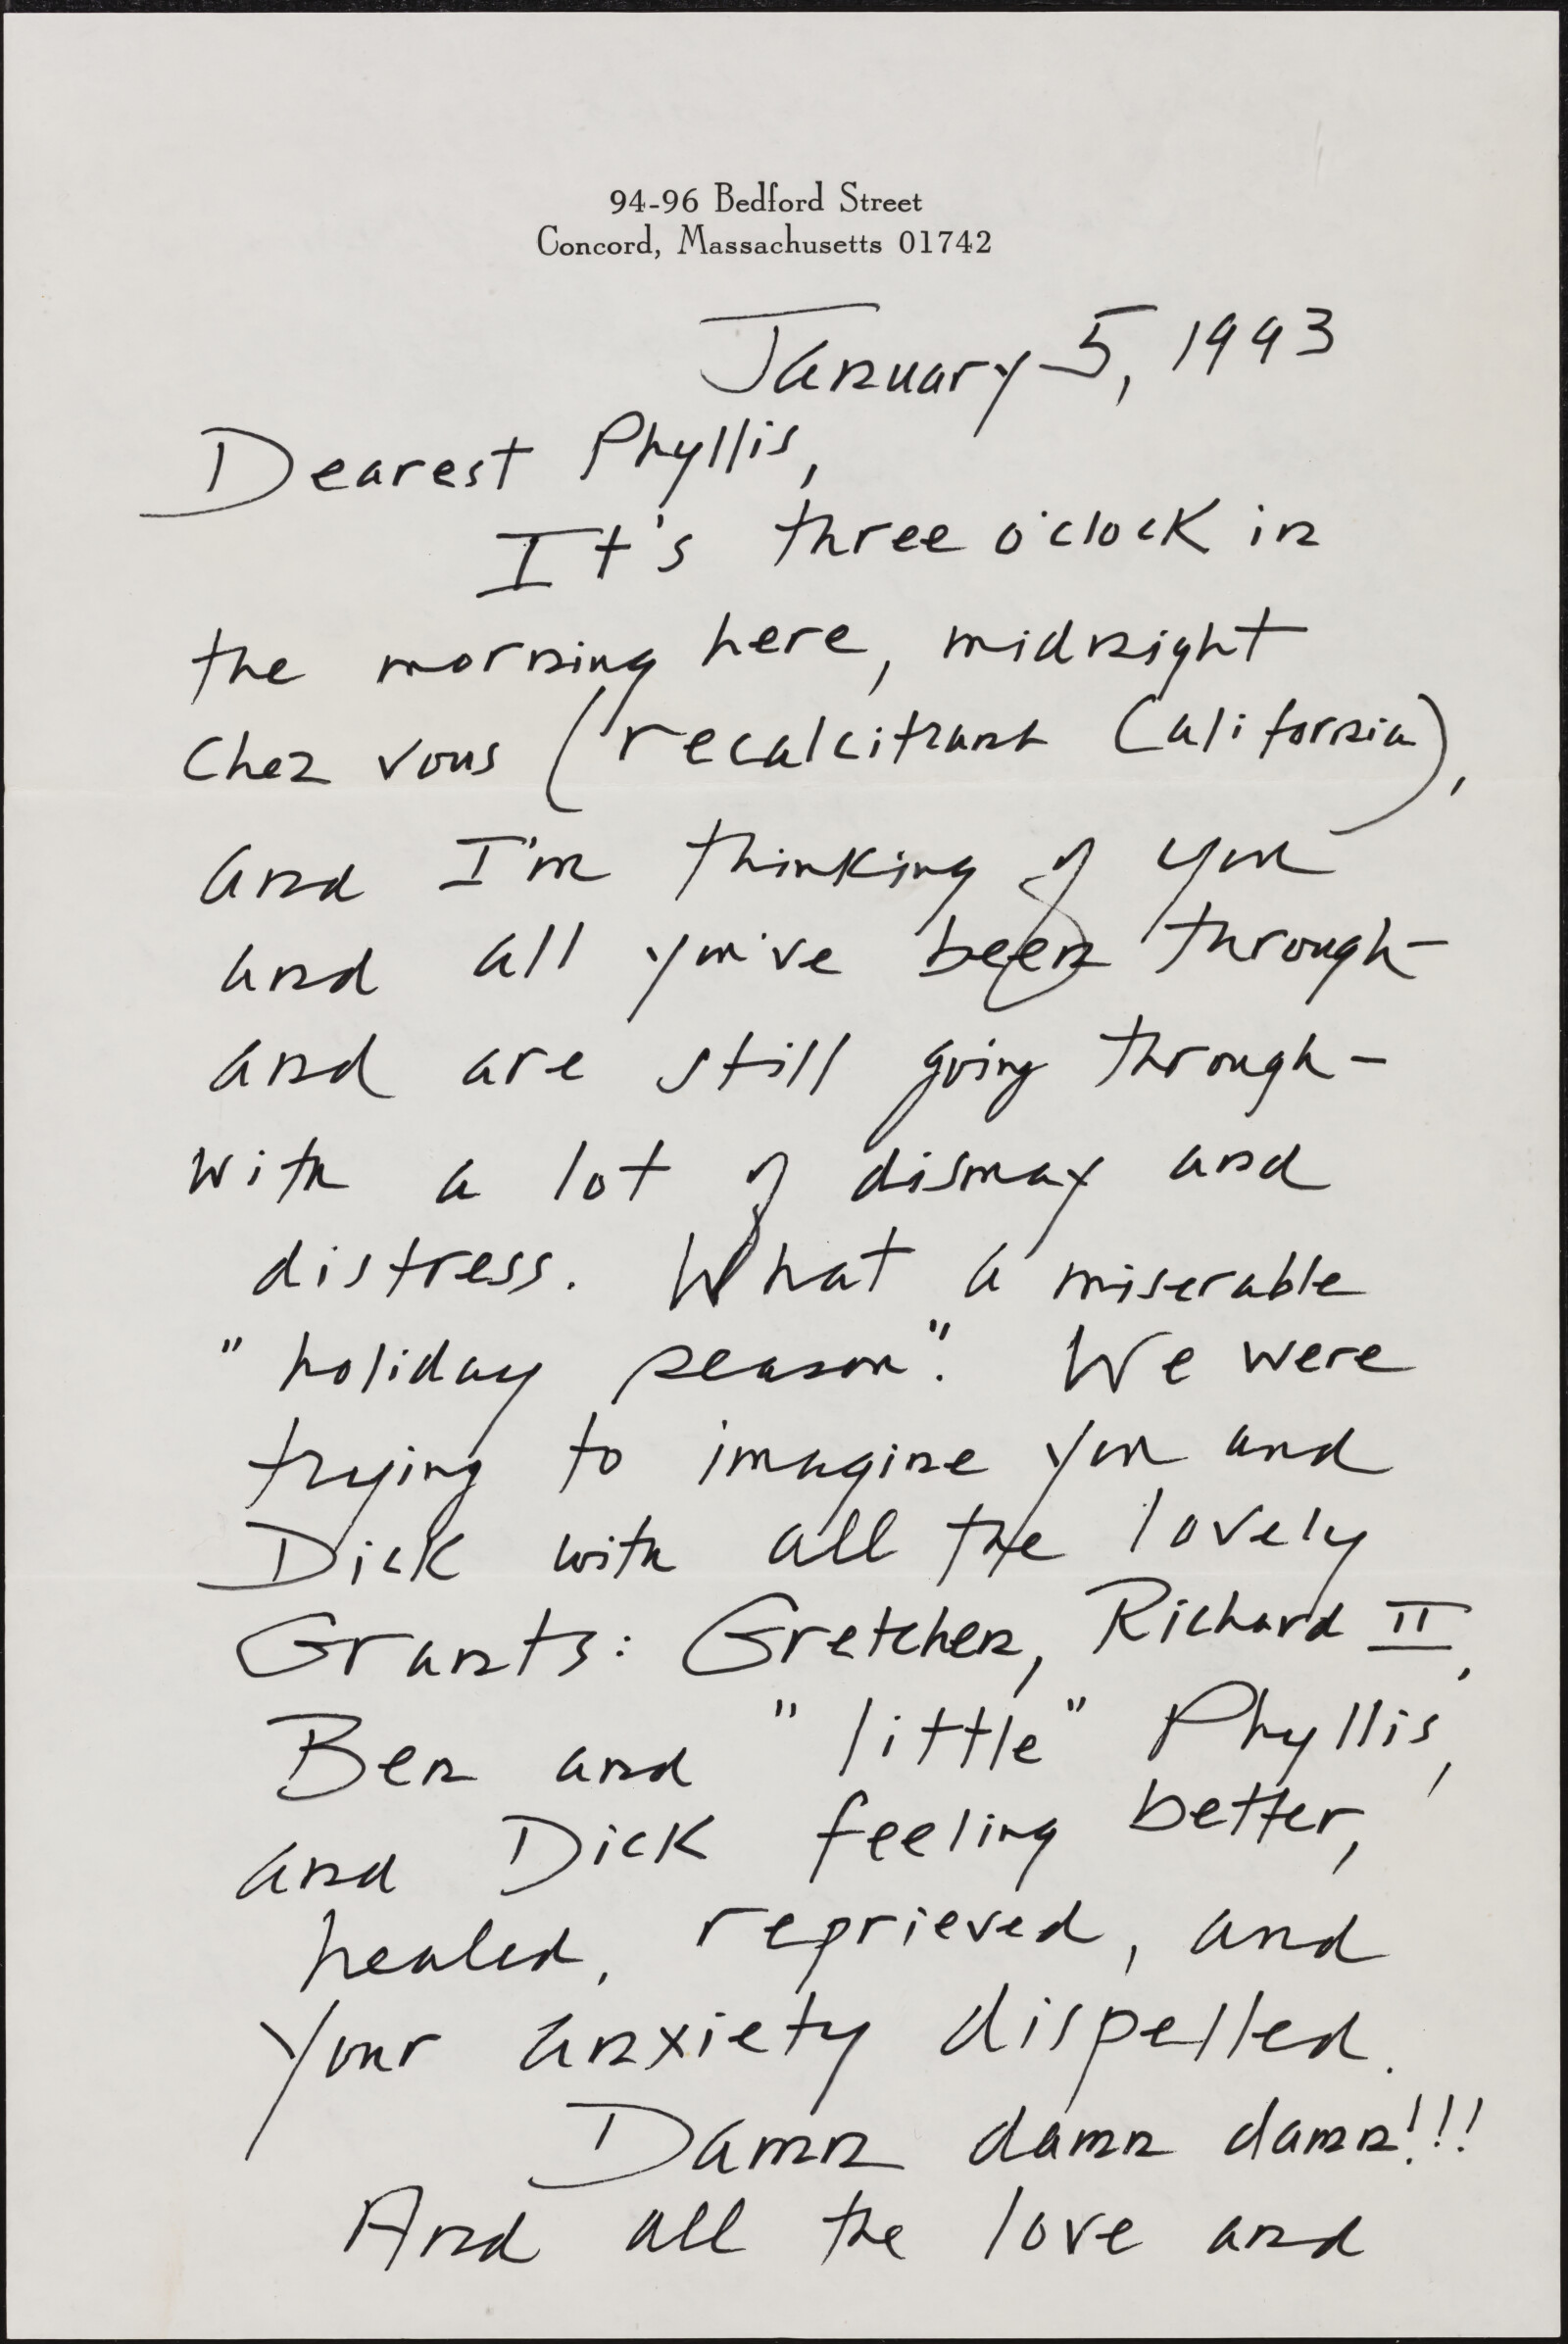 94-96 Bedford Street
Concord, Massachusetts 01742
January 5, 1993
Dearest Phyllis,
It's three o'clock in
the morning here, midnight
chez vous (recalcitrant California),
and I'm thinking of you
and all you've been through—
and are still going through—
with a lot of dismay and
distress. What a miserable
"holiday season". We were
trying to imagine you and
Dick with all the lovely
Grants: Gretchen, Richard II,
Ben and "little" Phyllis,
and Dick feeling better,
healed, reprieved, and
your anxiety dispelled.
Damn damn damn!!!
And all the love and